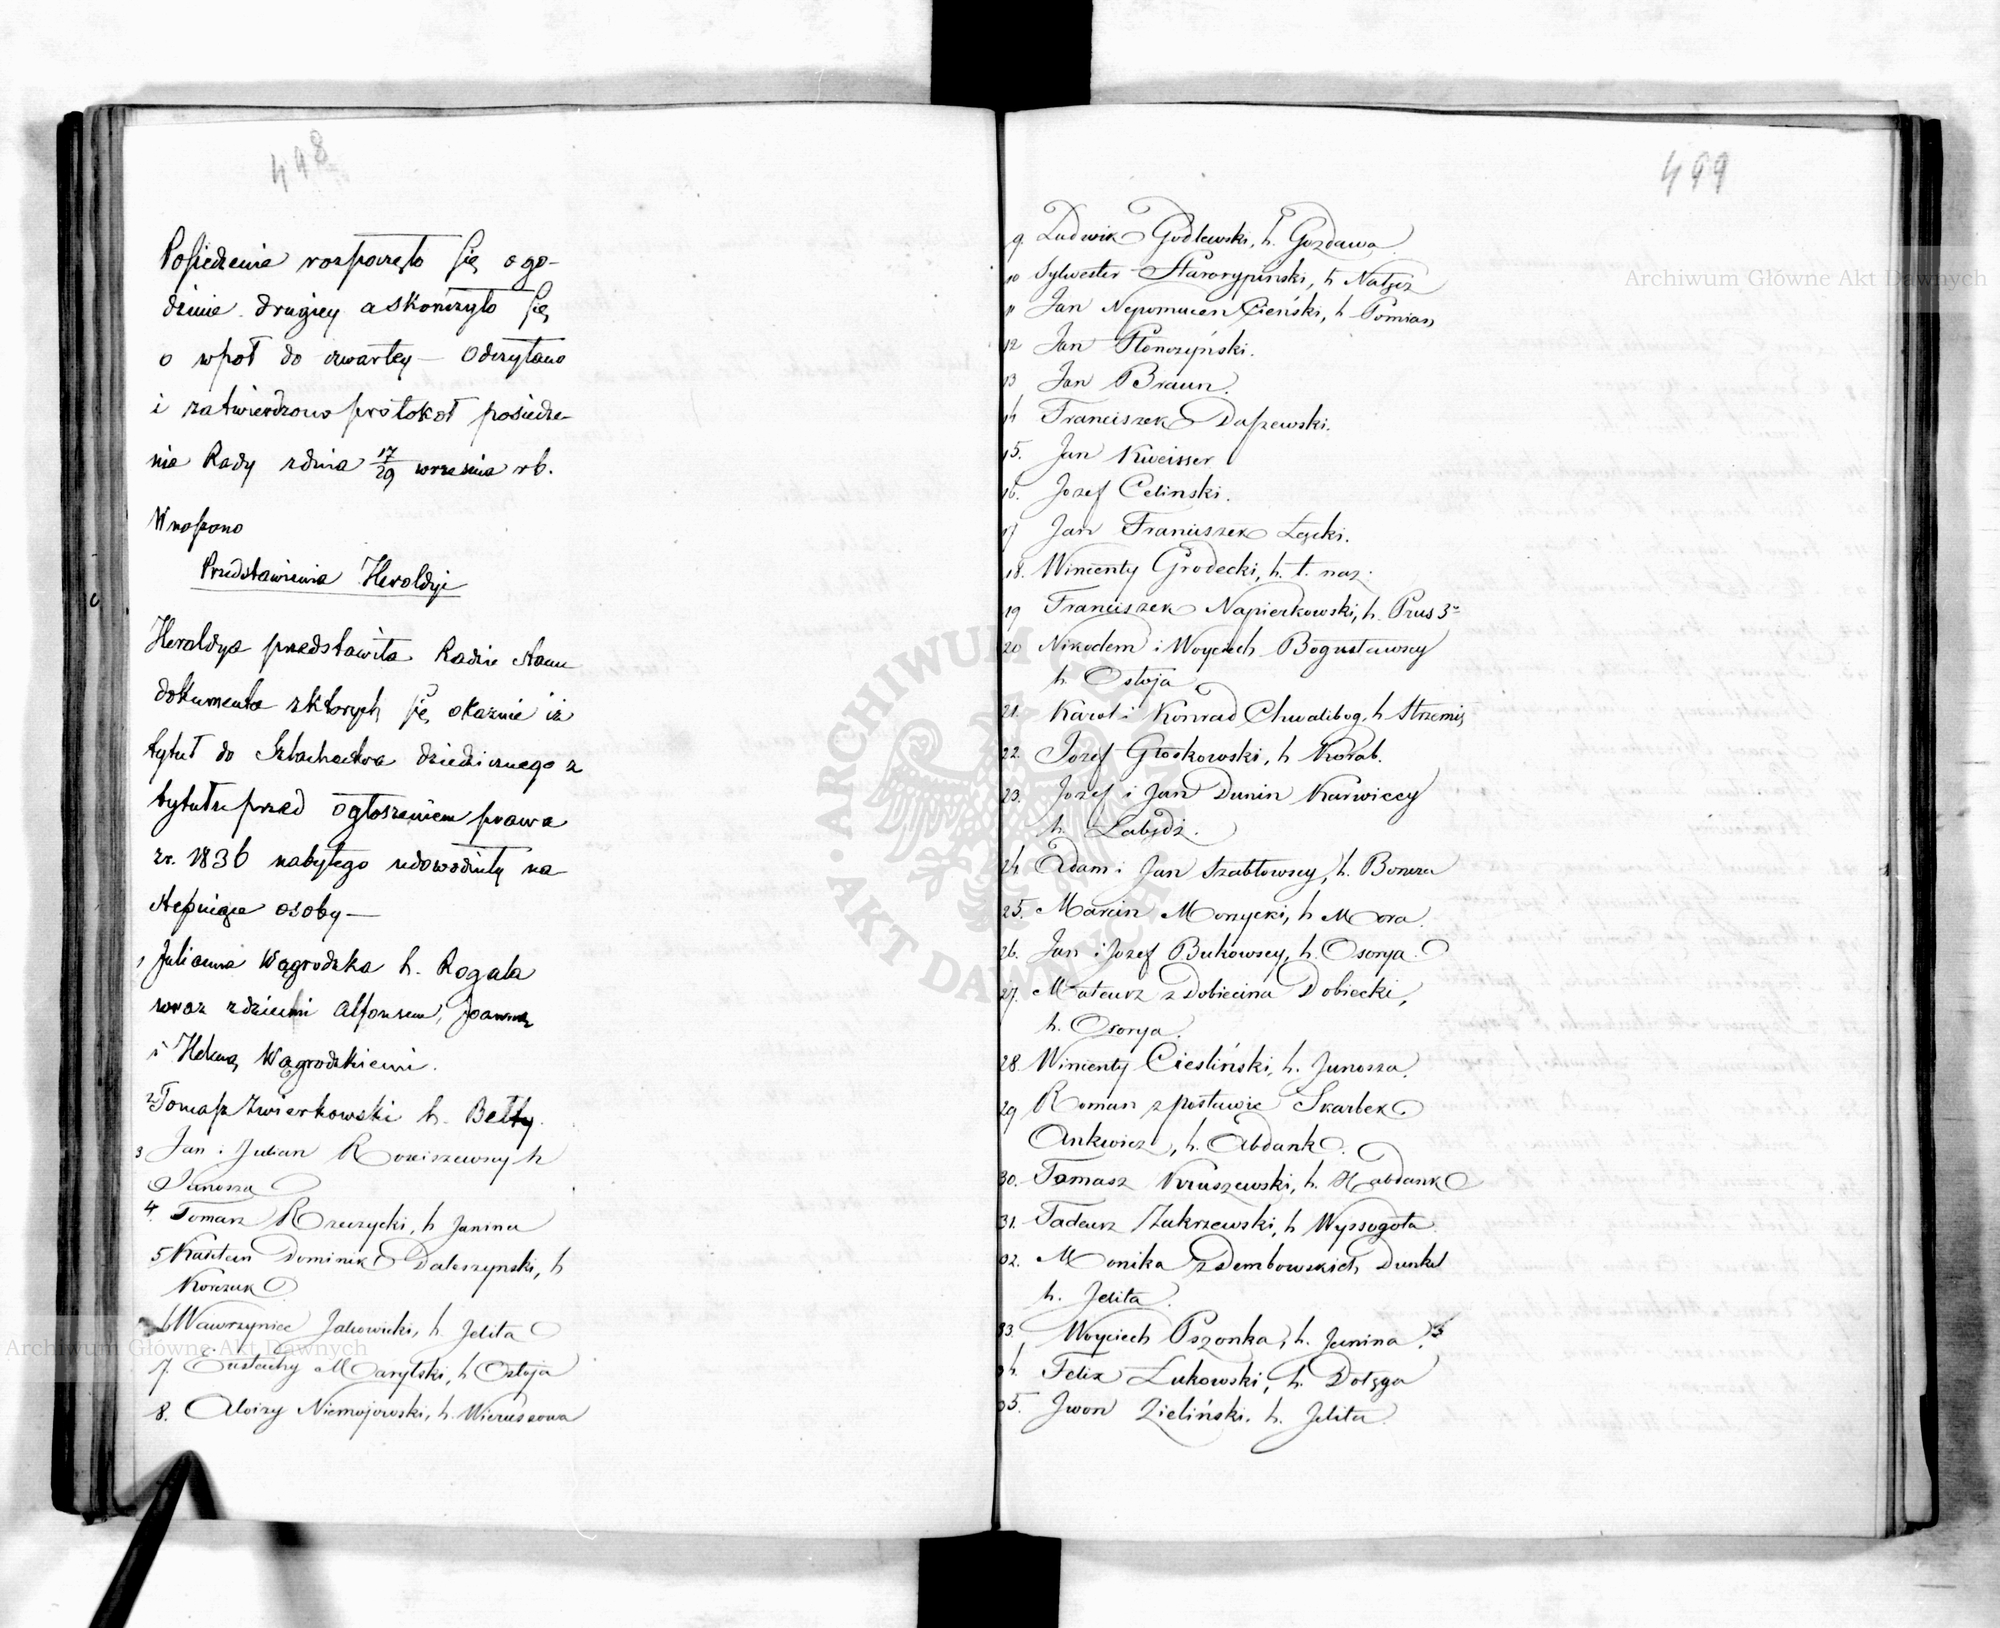 498
Posiedzenie rozpoczęto się o go-
dzinie drugiey a skończyło się
o wpoł do czwartey — Odczytano
i zatwierdzono protokoł posiedze-
nia Rady z dnia 17/29 września rb.
Wnoszono
Przedstawienia Heroldyi
Heroldya przedstawiła Radzie Stanu
dokumenta z ktorych się okazuie iż
tytuł do Szlachectwa dziedzicznego z
tytułu przed ogłoszeniem prawa
zr. 1836 nabytego udowodniły na-
stępuiące osoby —
1 Julianna Wągrodzka h. Rogala
wraz z dziećmi Alfonsem, Joanną
i Heleną Wągrodzkiemi.
2 Tomasz Zwierkowski h. Bełty.
3 Jan i Julian Rosciszewscy h
Junosza
4. Tomasz Rzeczycki, h Janina
5 Kajetan Dominik Daleszynski, h
Korczak
6 Wawrzyniec Jakowicki, h Jelita
7. Eustachy Marylski, h Ostoja
8. Aloizy Niemojowski, h. Wieruszowa
499
9. Ludwik Godlewski, h. Gozdawa
10 Sylwester Starorypinski, h Nałęcz
11 Jan Nepomucen Cieński, h Pomian
12 Jan Słonczyński.
13 Jan Braun.
14 Franciszek Daszewski.
15. Jan Kweisser
16. Jozef Celinski.
17 Jan Franciszek Łącki.
18. Wincenty Grodecki, h. t. naz.
19 Franciszek Napierkowski, h. Prus 3o
20 Nikodem i Woyciech Bogusławscy
h. Ostoja
21. Karol i Konrad Chwalibog, h Strzemię
22. Jozef Głoskowski, h Korab.
23. Jozef i Jan Dunin Karwiccy
h. Łabędź.
24 Adam i Jan Szabłowscy, h. Boncza
25. Marcin Morzycki, h Mora.
26. Jan i Jozef Bukowscy, h. Osorya.
27. Mateusz z Dobiecina Dobiecki,
h. Osorya.
28. Wincenty Ciesliński, h. Junosza.
29 Roman z postawic Skarbek
Ankwicz, h. Abdank.
30. Tomasz Kruszewski, h. Habdank
31. Tadeusz Zakrzewski, h Wyssogota
32. Monika z Dembowskich Dunkel
h. Jelita.
33. Woyciech Pszonka, h. Janina.
34. Felix Łukowski, h. Dołęga
35. Iwon Zieliński. h. Jelita.
Archiwum Główne Akt Dawnych
Archiwum Główne Akt Dawnych
ARCHIWUM GŁÓWNE AKT DAWNYCH